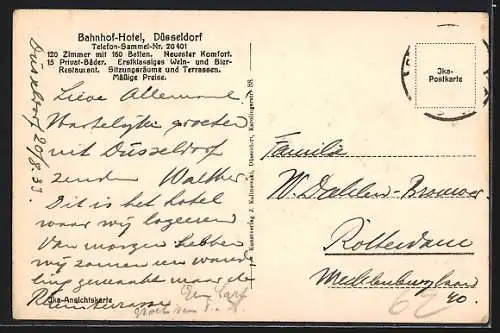 Bahnhof-Hotel, Düsseldorf
Telefon-Sammel-Nr. 20401
120 Zimmer mit 160 Betten. Neuester Komfort.
15 Privat-Bäder. Erstklassiges Wein- und Bier-
Restaurant. Sitzungsräume und Terrassen.
Mäßige Preise.
Düsseldorf 20/8.33
Lieve Allemaal
Hartelijke groeten
uit Düsseldorf
zenden Walther
Dit is het hotel
waar wij logeeren
Van morgen hebben
wij samen een wande
ling gemaakt naar de
Jka-Ansichtskarte
Kunstverlag J. Kallinowski, Düsseldorf, Karolingerstr. 88.
Jka-
Postkarte
Familie
W. Dahlen-
Rotterdam
Mecklenburglaan
40.
62